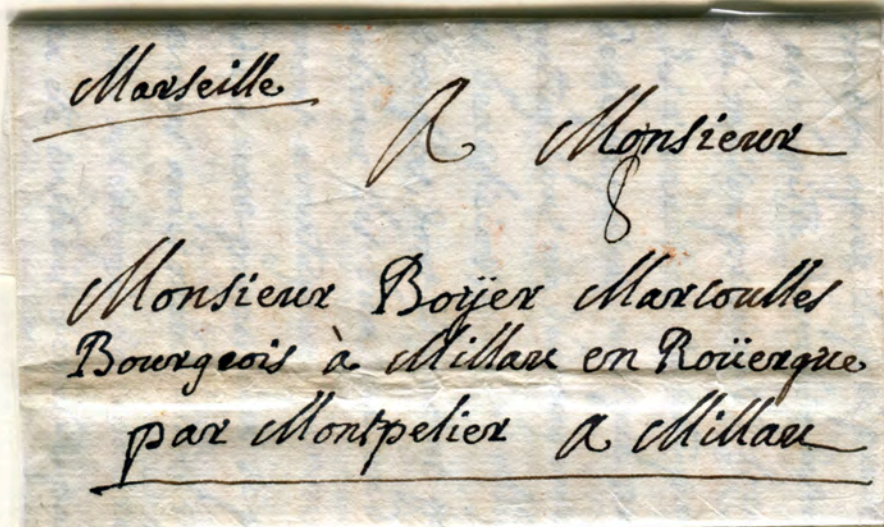 Marseille
A Monsieur
8
Monsieur Boÿer Marcoulles
Bourgeois à Millau en Roüergue
par Montpelier A Millau